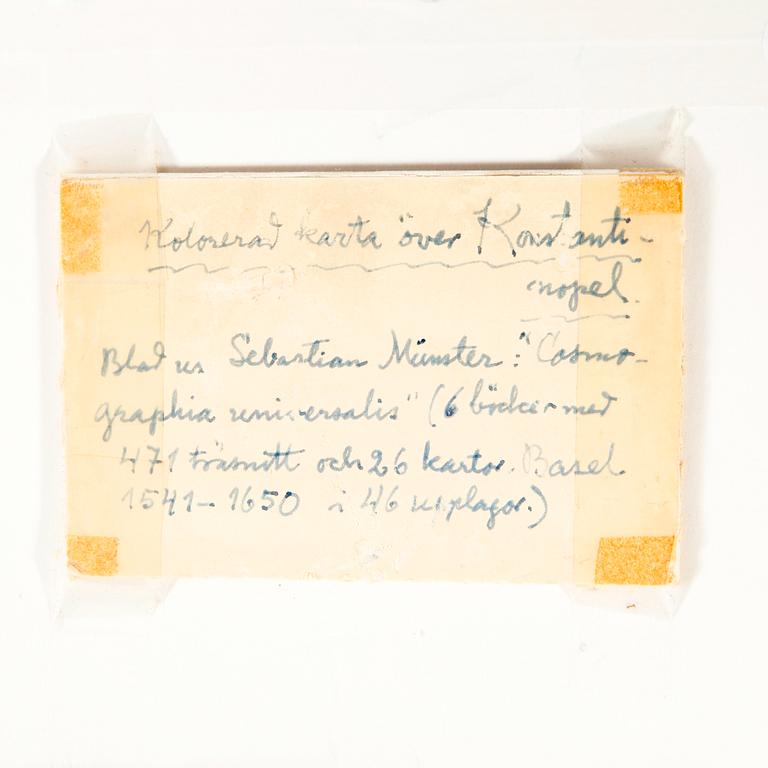 Kolorerad karta över Konstanti-
nopel.
Blad ur Sebastian Münster: "Cosmo-
graphia universalis" (6 böcker med
471 träsnitt och 26 kartor. Basel
1541-1650 i 46 upplagor.)